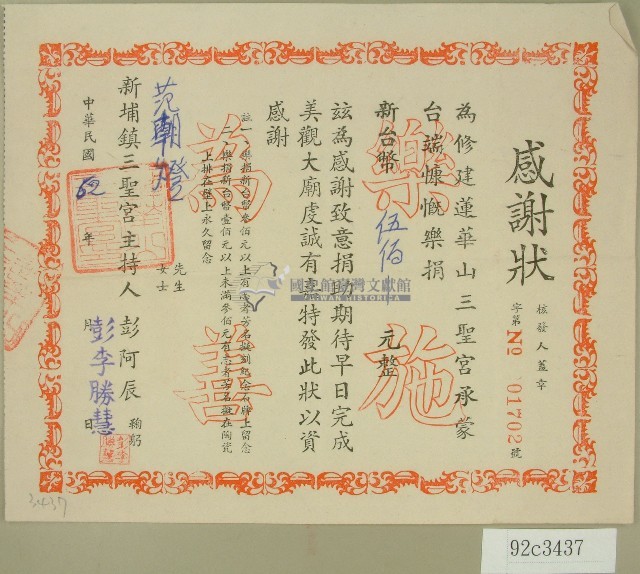 感謝狀
核發人蓋章
字第 No 01702 號
為修建蓮華山三聖宮承蒙
台端慷慨樂捐
新台幣 伍佰 元整
茲為感謝致意捐助期待早日完成
美觀大廟虔誠有幸特發此狀以資
感謝
註一、樂捐新台幣參佰元以上有志者芳名擬刻紀念石牌上留念
二、樂捐新台幣壹佰元以上未滿參佰元有志者芳名擬在陶瓷
上排在壁上永久留念
范朝燈
先生
女士
新埔鎮三聖宮主持人 彭阿辰 鞠躬
彭李勝慧
中華民國 62 年 月 日
樂施
為善
國史館臺灣文獻館
TAIWAN HISTORICA
3437
92c3437